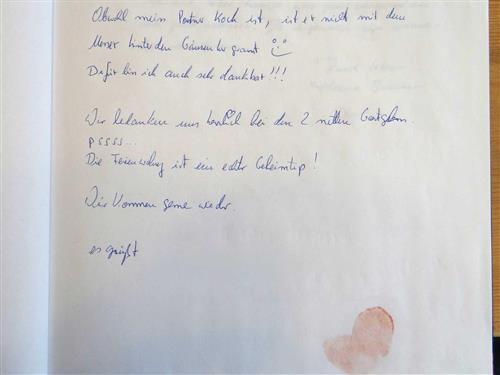 Obwohl mein Partner Koch ist, ist er nicht mit dem
Messer hinter den Gänsen her gerannt
Dafür bin ich auch sehr dankbar!!!
Wir bedanken uns herzlich bei den 2 netten Gastgebern.
pssss...
Die Ferienwohng ist ein echter Geheimtip!
Wir kommen gerne wieder.
es grüßt